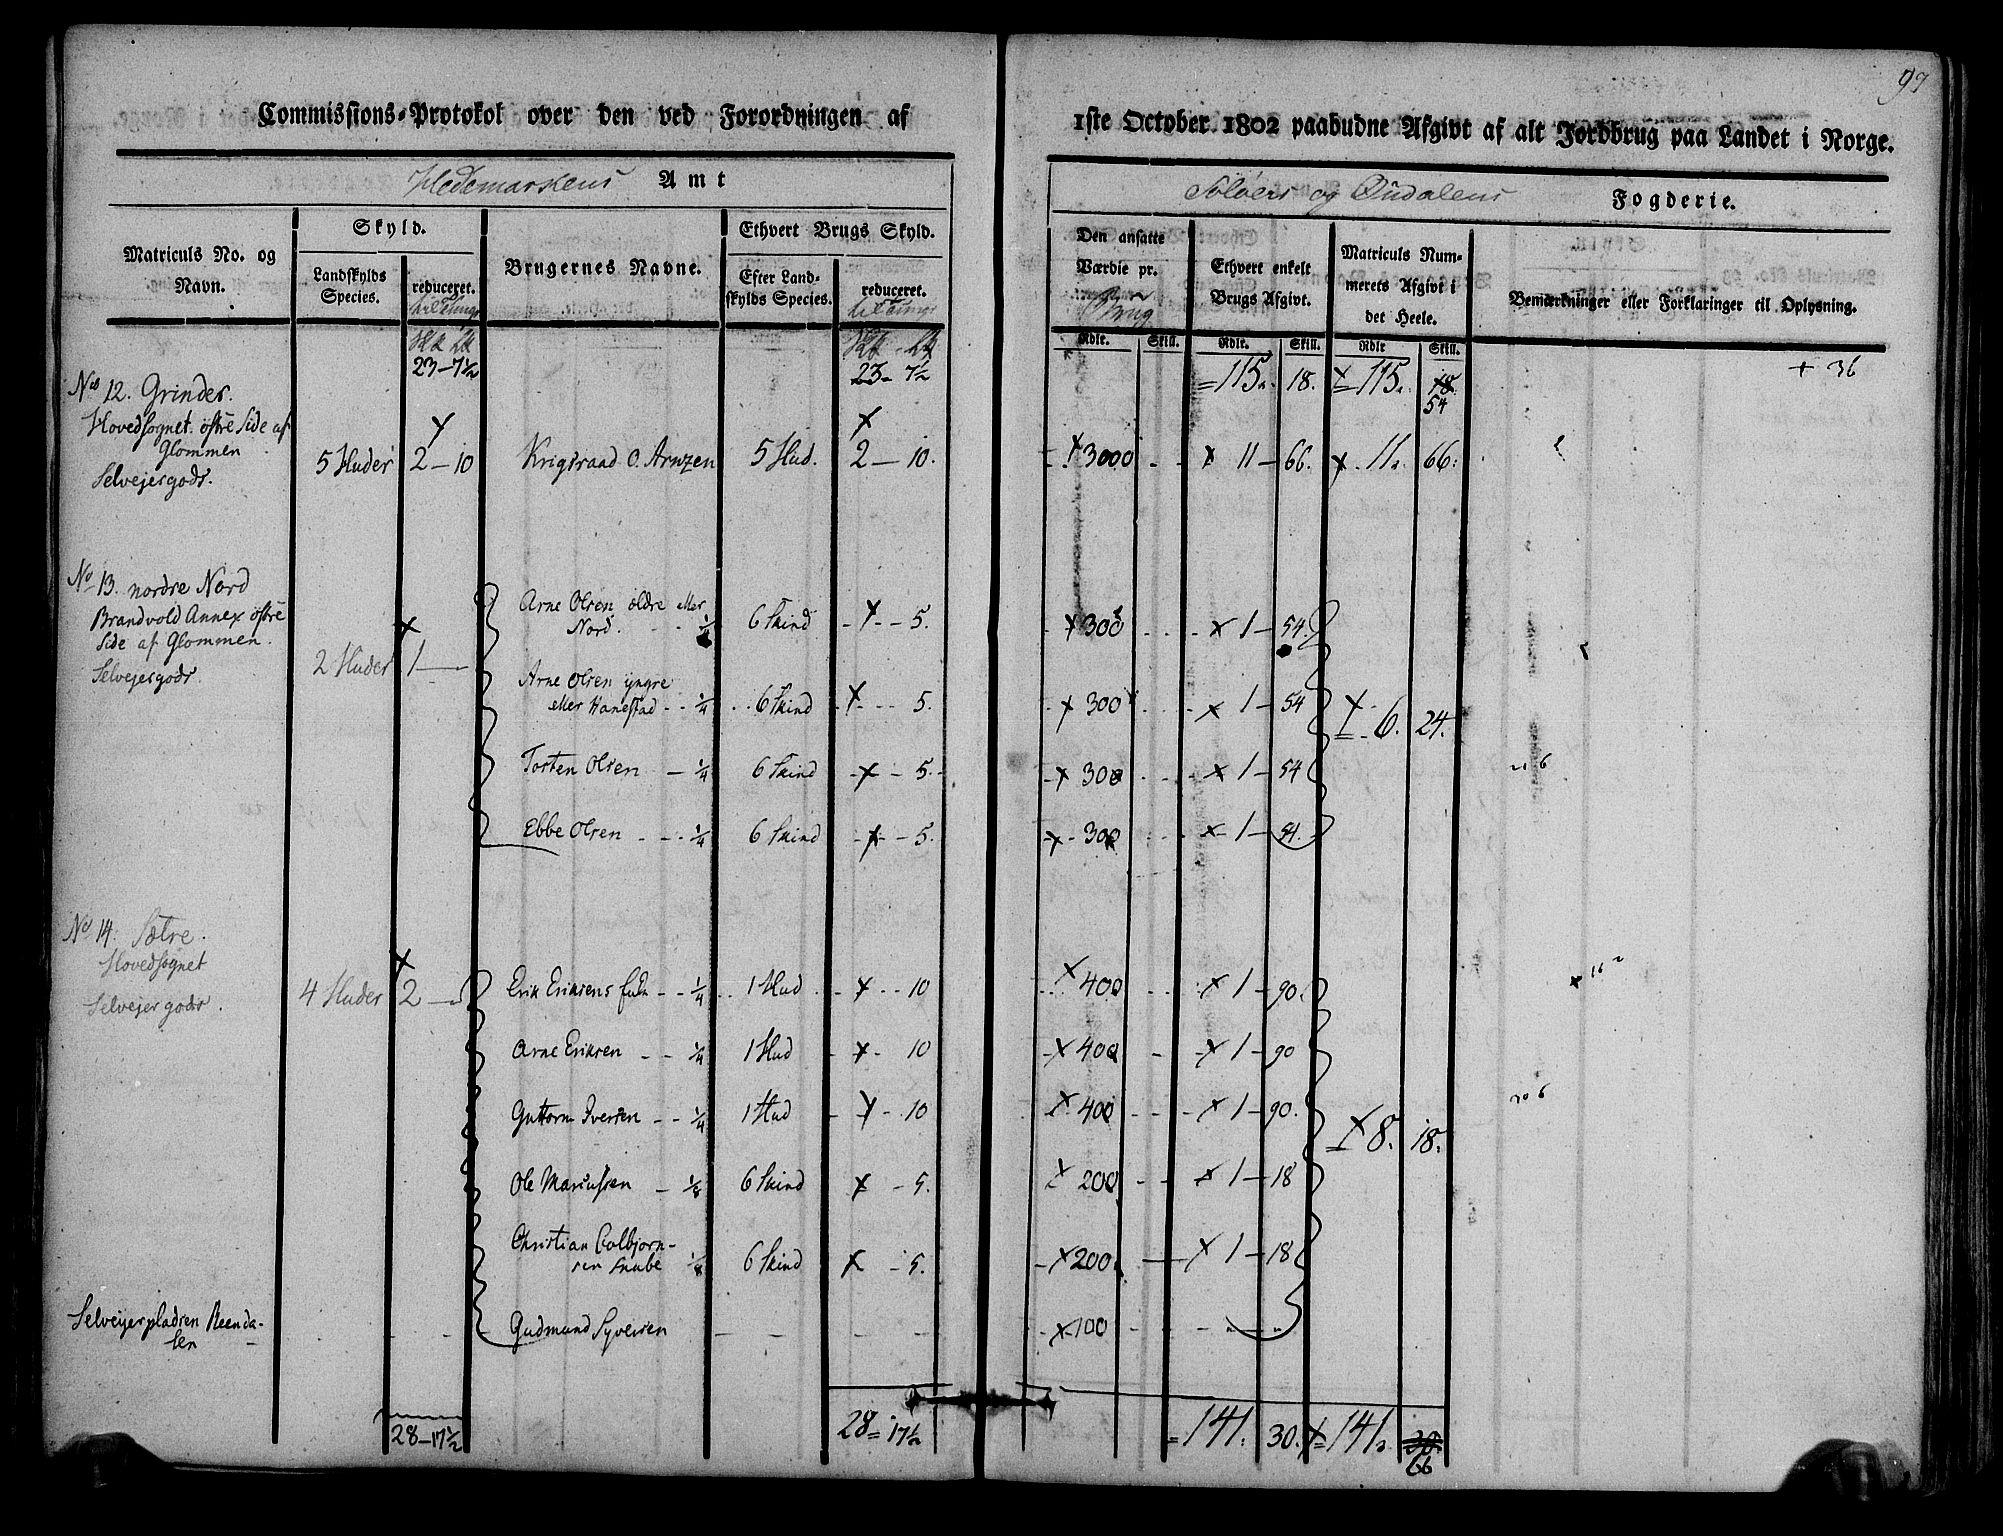 97
Commissions-Protokol over den ved Forordningen af 1ste October 1802 paabudne Afgivt af alt Jordbrug paa Landet i Norge.
Hedemarkens Amt
Soløers og Oudalens Fogderie.
Matriculs No. og Navn.
Skyld.
Landskylds Species.
reduceret.
til Tunge
Brugernes Navne.
Ethvert Brugs Skyld.
Efter Landskylds Species.
reduceret.
til Tunge
Den ansatte Værdie pr.
Brug
Ethvert enkelt Brugs Afgivt.
Matriculs Nummerets Afgivt i det Heele.
Bemærkninger eller Forklaringer til Oplysning.
Rdlr. Skill. Rdlr. Skill. Rdlr Skill.
23-7½ 23- 7½ =115. 18. x=115. 18. + 36
54
No 12. Grinder.
Hovedsognet østre Side af
Glommen
Selvejergods.
5 Huder 2-10 Krigsraad O. Arnzen 5 Hud. 2-10. x 3000 x 11-66. x 11. 66.
No 13. nordre Nord
Brandvold Annex østre
Side af Glommen.
Selvejergods.
2 Huder 1-
Arne Olsen ældre eller
Nord. ¼ 6 Skind x - 5. x 300 x 1-54.
Arne Olsen yngre
eller Hanestad - - ¼ 6 Skind x - 5. x 300 x 1-54 x 6. 24.
Torsten Olsen - ¼ 6 Skind x - 5. x 300 x 1-54
Ebbe Olsen - - ¼ 6 Skind x - 5. x 300 x 1-54.
No 14. Sætre.
Hovedsognet
Selvejergods.
4 Huder 2 -
Erik Eriksens - - ¼ 1 Hud x - 10 x 400 x 1-90.
Arne Eriksen - - ¼ 1 Hud x - 10 x 400 x 1-90
Guttorm Iversen - - ¼ 1 Hud x - 10 x 400 x 1-90. x 8. 18.
Ole Mariussen - ⅛ 6 Skind x - 5. x 200 x 1-18
Christian Colbjørn-
sen ⅛ 6 Skind x - 5. x 200 x 1-18
Selveyerpladsen Reenda-
len
Gudmund Syversen x 100
28-17½ 28=17½ =141. 30. x=141. 30.
66